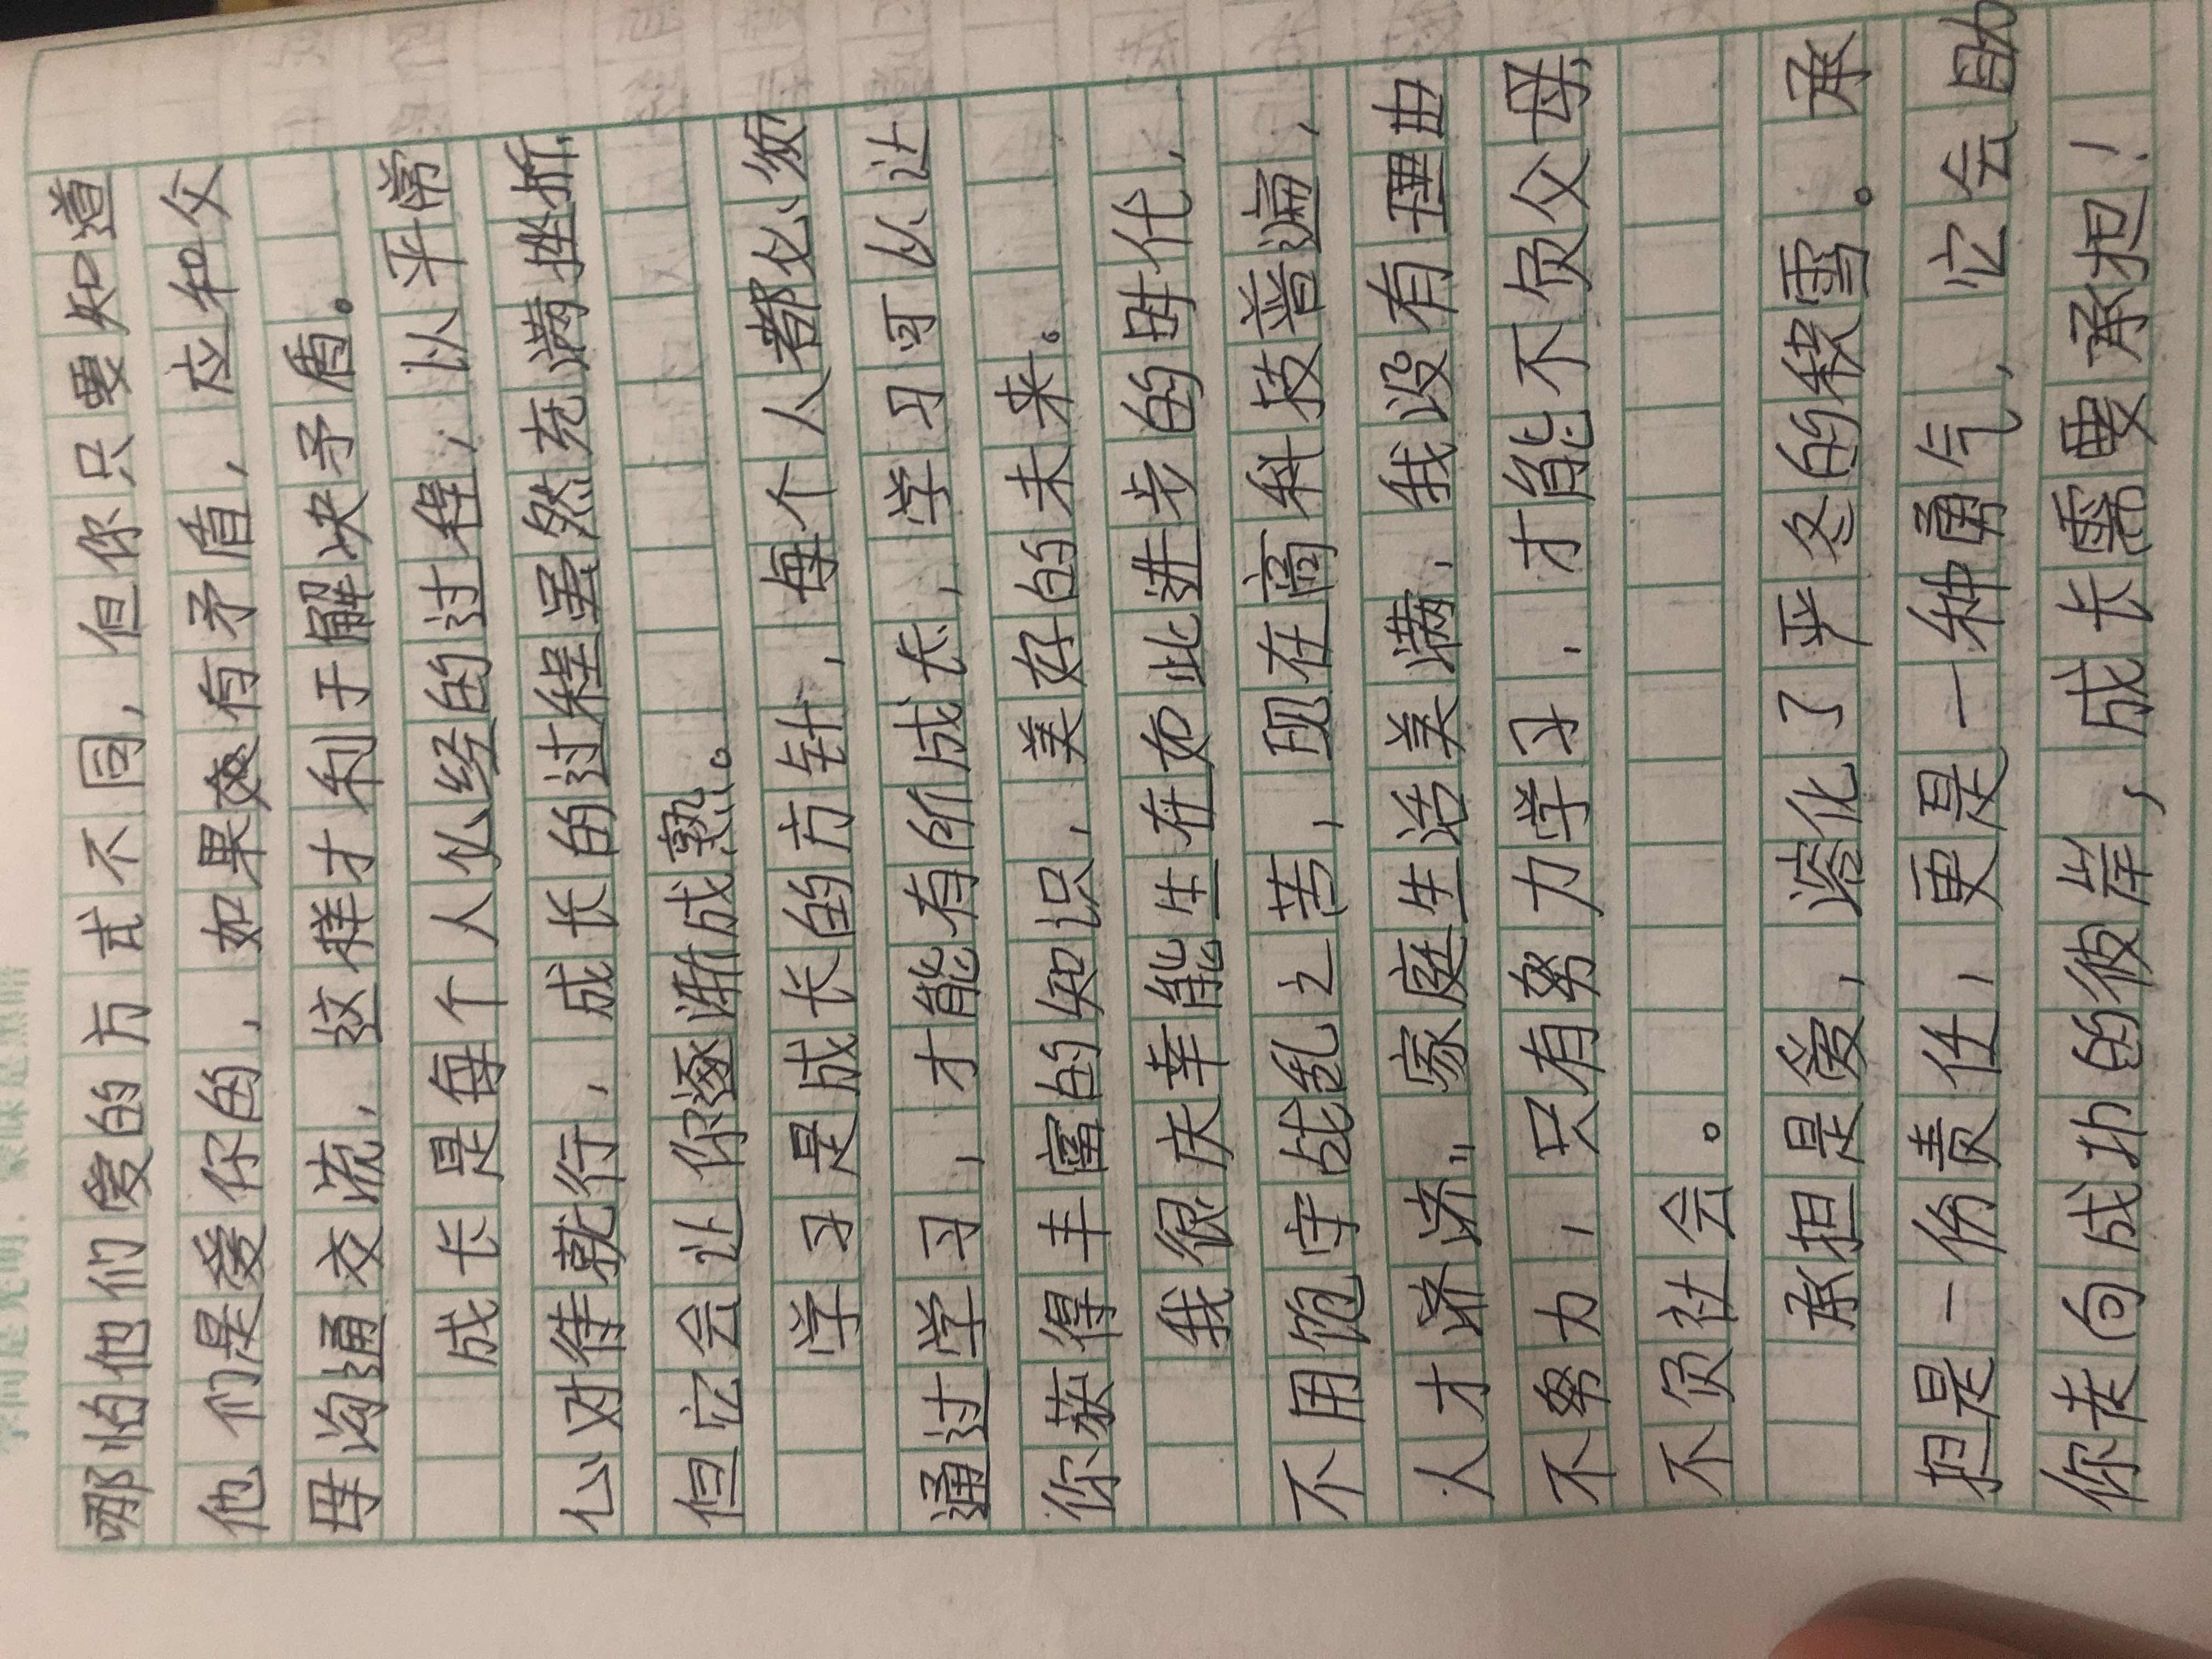 哪怕他们爱的方式不同,但你只要知道
他们是爱你的,如果有矛盾,应和父
母沟通交流,这样才利于解决矛盾。
成长是每个人必经的过程,以平常
心对待就行,成长的过程虽然充满挫折,
但它会让你逐渐成熟。
学习是成长的方针,每个人都必须
通过学习,才能有所成长,学习可以让
你获得丰富的知识,美好的未来。
我很庆幸能生在如此进步的时代,
不用饱守战乱之苦,现在高科技普遍,
人才济济,家庭生活美满,我没有理由
不努力,只有努力学习,才能不负父母
不负社会。
承担是爱,溶化了严冬的积雪。承
担是一份责任,更是一种勇气,它会助
你走向成功的彼岸,成长需要承担!